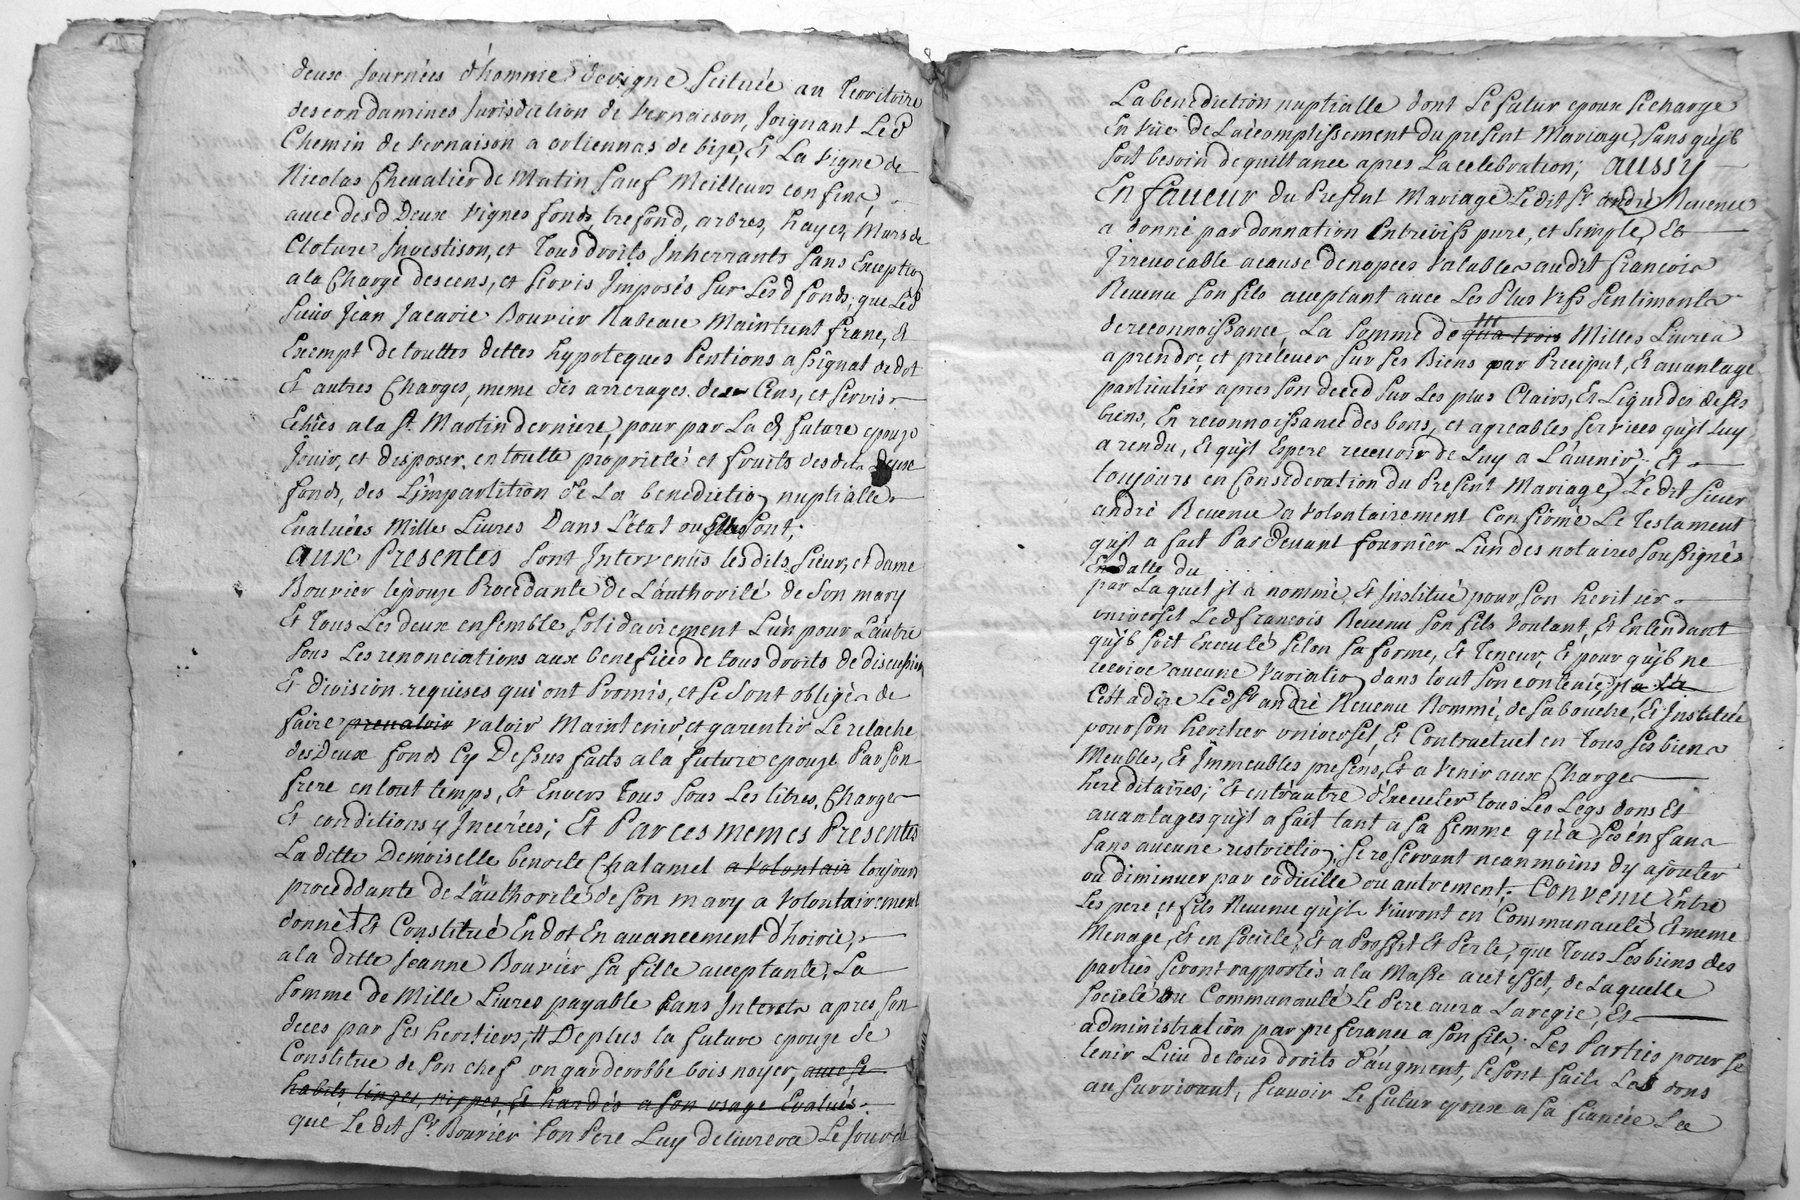 deux journées d'homme de vigne scituée au Territoire
des condamines Jurisdiction de Vernaison, Joignant Led
Chemin de Vernaison a orliennas de bize, Et La vigne de
Nicolas Chevalier de Matin sauf Meilleurs confins,
avec desd Deux vignes fonds, trefond, arbres, hayes, Murs de
Cloture Investison, et Tous droits Inherrants sans Exceptio
a la Charge des cens, et servis Imposés sur Lesd fonds; que Led
sieur Jean Jacavie Bouvier Rabeau Maintient franc, et
Exempt de touttes dettes hypoteques Pentions assignat de dot
Et autres Charges, meme des arrerages des Cens, et servis
Echus a la St. Martin derniere, pour par La d. future epouze
Jouir, et disposer en toutte proprieté et fruits desdits deux
fonds, des L'impartition de La benedictio nuptialle
Evaluées Milles Livres Dans L'état ou elles sont;
aux Presentes sont Intervenus lesdits sieur, et dame
Bouvier L'épouze Procedante de L'authorité de son mary
Et Tous Les deux ensemble solidairement L'un pour L'autre
sous Les renonciations aux benefices de tous droits de discussion
Et division requises qui ont Promis, et se sont obligés de
faire prevaloir valoir Maintenir, et garentir Le relache
des Deux fonds Cy Dessus faits a la future epouze Par son
frere en tout temps, Et Envers Tous sous Les titres, Charges
Et conditions y Inserées; Et Par ces memes Presentes
La ditte Demoiselle benoite Chalamel a volontair toujours
proceddante de L'authorité de son mary a volontairement
donné + Et Constitué En dot En avancement d'hoirie,
a la ditte Jeanne Bouvier sa fille acceptante, La
somme de Mille Livres payable sans Interets apres son
deces par ses heritiers; # De plus la future epouze se
Constitue de son chef un garderobbe bois noyer, avec se
habits linges, nippes, Et hardes a son usage Evalués
que Le dit Sr. Bouvier son Pere Luy delivrera Le jour de
La benediction nuptialle dont Le futur epoux se charge
En vüe de L'acomplissement du present Mariage, sans qu'jl
soit besoin de quittance apres La celebration; aussy
En faveur du Present Mariage Le dit Sr. andré Revenu
a donné par donnation Entrevifs pure, et simple, Et
Jrrevocable a cause de nopces valable audit francois
Revenu son fils acceptant avec Les Plus vifs sentiments
de reconnoissance, La somme de qua trois III Milles Livres
a prendre, et prélever sur ses Biens par Preciput, Et avantage
particulier apres son deced sur Les plus Clairs, Et Liquides de ses
biens, En reconnoissance des bons, et agreables services qu'jl Luy
a rendu, Et qu'jl Espere recevoir de Luy a L'avenir; Et
toujours en Consideration du Present Mariage, Le dit sieur
andré Revenu a volontairement Confirmé Le Testament
qu'jl a fait Par devant fournier L'un des notaires soussignés
En datte du
par Laquel jl a nommé, Et Institué pour son heritier
universel Led francois Revenu son fils voulant, Et Entendant
qu'jl soit Executé selon sa forme, Et Teneur, Et pour qu'jl ne
recoive aucune Variatio dans tout son contenu, jl a La
C'est a dire Led Sr andré Revenu Nommé, de sa bouche, Et Instituée
pour son heritier universel, Et Contractuel en Tous ses biens
Meubles, Et Immeubles presens, Et a venir aux Charges
hereditaires; Et entr'autre d'Executer tous Les Legs dons Et
avantages qu'jl a fait tant a sa femme qu'a ses enfans
sans aucune restrictio; se reservant neanmoins d'y ajouter
ou diminuer par codicille ou autrement; Convenu Entre
Les pere, et fils Revenu qu'jls vivront en Communauté Et meme
Menage, Et en société, Et a Proffit Et Perte, que Tous Les biens des
parties seront rapportés a la Masse a cet effet, de Laquelle
société ou Communauté Le Pere aura La regie, Et
administration par preferance a son fils; Les Parties pour se
tenir Lieu de tous droits d'augment, se sont faits Les dons
au survivant, scavoir Le futur epoux a sa fiancée La